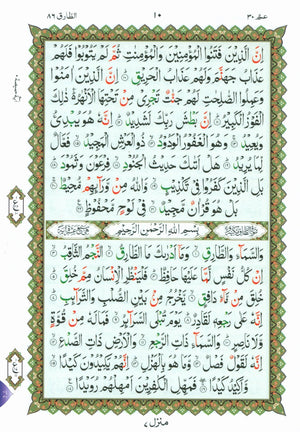 الطارق ٨٦
١٠
عم ٣٠
اِنَّ الَّذِيْنَ فَتَنُوا الْمُؤْمِنِيْنَ وَالْمُؤْمِنٰتِ ثُمَّ لَمْ يَتُوْبُوْا فَلَهُمْ
عَذَابُ جَهَنَّمَ وَلَهُمْ عَذَابُ الْحَرِيْقِ اِنَّ الَّذِيْنَ اٰمَنُوْا
وَعَمِلُوا الصّٰلِحٰتِ لَهُمْ جَنّٰتٌ تَجْرِيْ مِنْ تَحْتِهَا الْاَنْهٰرُ ذٰلِكَ
الْفَوْزُ الْكَبِيْرُ اِنَّ بَطْشَ رَبِّكَ لَشَدِيْدٌ اِنَّهٗ هُوَ يُبْدِئُ
وَيُعِيْدُ وَهُوَ الْغَفُوْرُ الْوَدُوْدُ ذُو الْعَرْشِ الْمَجِيْدُ فَعَّالٌ
لِّمَا يُرِيْدُ هَلْ اَتٰىكَ حَدِيْثُ الْجُنُوْدِ فِرْعَوْنَ وَثَمُوْدَ
بَلِ الَّذِيْنَ كَفَرُوْا فِيْ تَكْذِيْبٍ وَّاللّٰهُ مِنْ وَّرَآئِهِمْ مُّحِيْطٌ
بَلْ هُوَ قُرْاٰنٌ مَّجِيْدٌ فِيْ لَوْحٍ مَّحْفُوْظٍ
بِسْمِ اللّٰهِ الرَّحْمٰنِ الرَّحِيْمِ
وَالسَّمَآءِ وَالطَّارِقِ وَمَآ اَدْرٰىكَ مَا الطَّارِقُ النَّجْمُ الثَّاقِبُ
اِنْ كُلُّ نَفْسٍ لَّمَّا عَلَيْهَا حَافِظٌ فَلْيَنْظُرِ الْاِنْسَانُ مِمَّ خُلِقَ
خُلِقَ مِنْ مَّآءٍ دَافِقٍ يَّخْرُجُ مِنْۢ بَيْنِ الصُّلْبِ وَالتَّرَآئِبِ
اِنَّهٗ عَلٰى رَجْعِهٖ لَقَادِرٌ يَوْمَ تُبْلَى السَّرَآئِرُ فَمَا لَهٗ مِنْ قُوَّةٍ
وَّلَا نَاصِرٍ وَالسَّمَآءِ ذَاتِ الرَّجْعِ وَالْاَرْضِ ذَاتِ الصَّدْعِ
اِنَّهٗ لَقَوْلٌ فَصْلٌ وَّمَا هُوَ بِالْهَزْلِ اِنَّهُمْ يَكِيْدُوْنَ كَيْدًا
وَّاَكِيْدُ كَيْدًا فَمَهِّلِ الْكٰفِرِيْنَ اَمْهِلْهُمْ رُوَيْدًا
منزل ٧